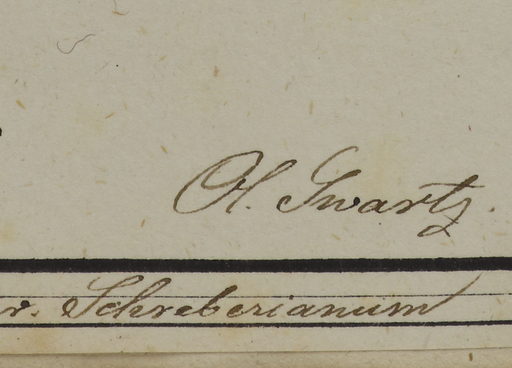 Ol. Swartz.
v. Schreberianum